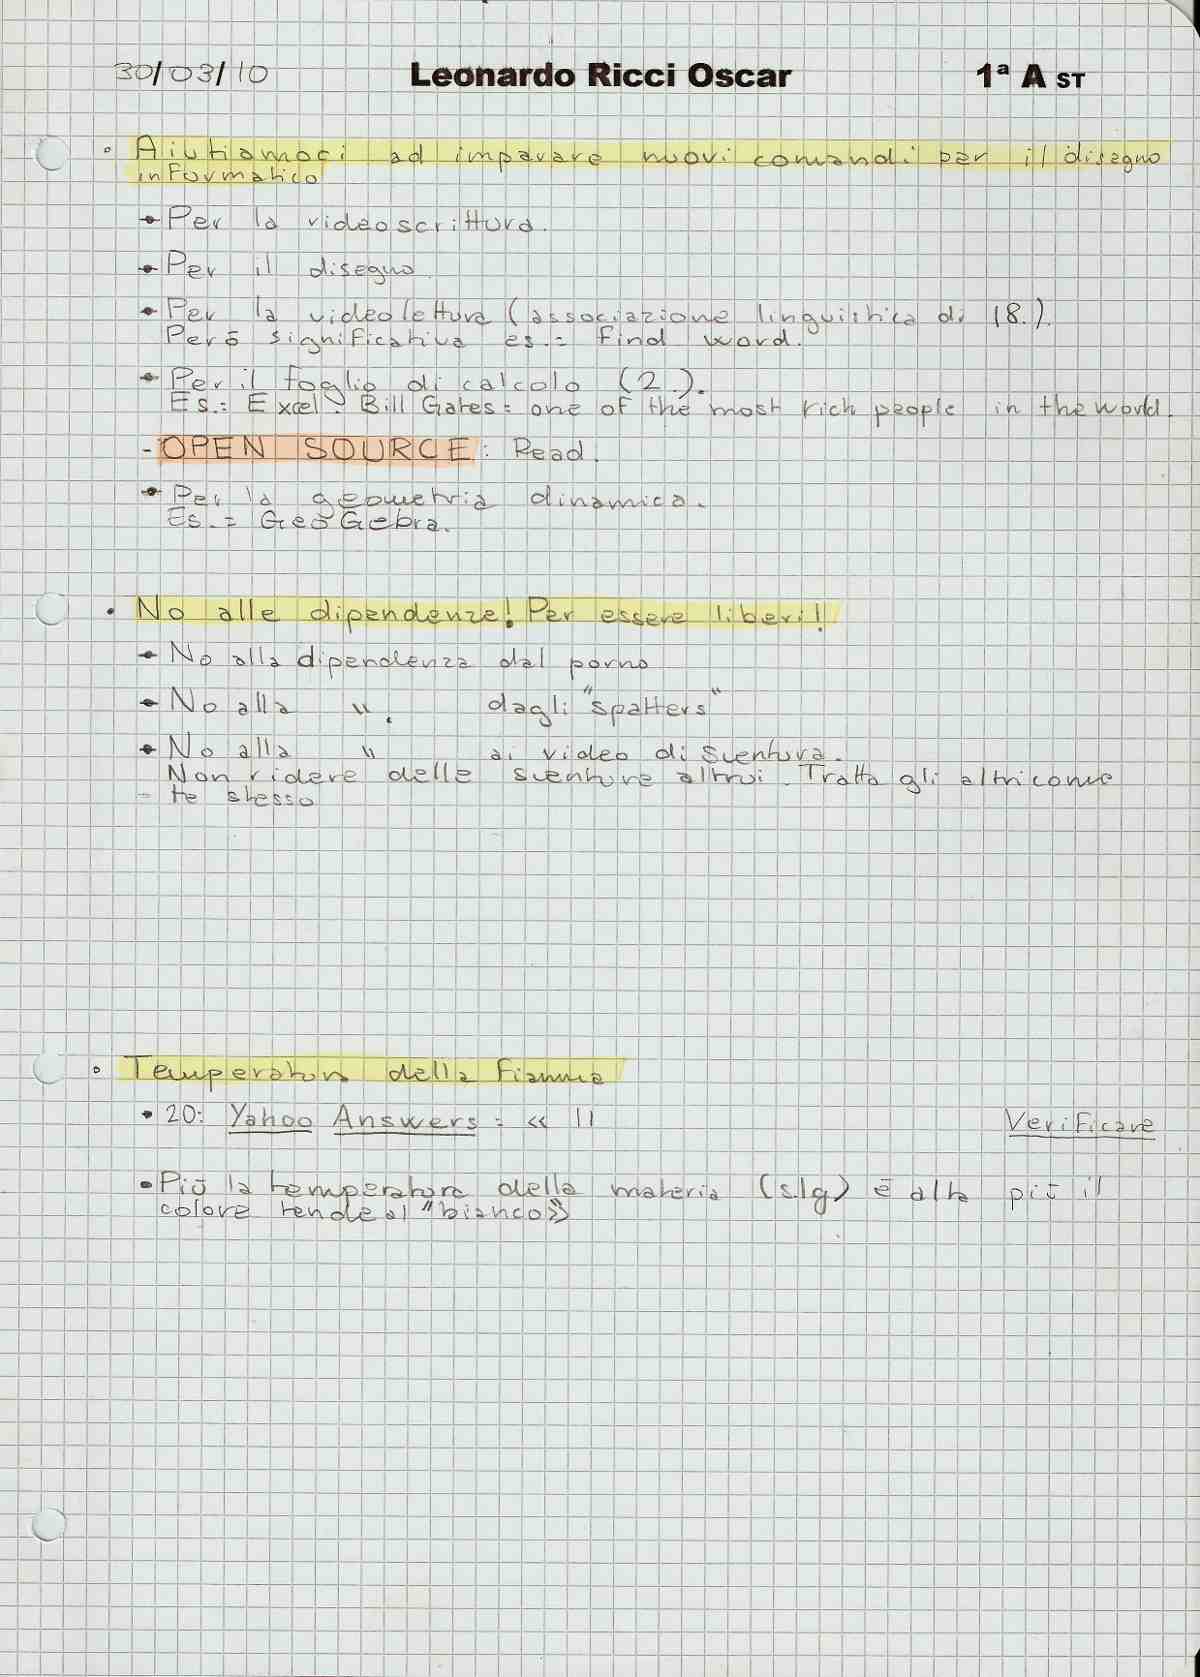 30/03/10 Leonardo Ricci Oscar 1ª A ST
• Aiutiamoci ad imparare nuovi comandi per il disegno
informatico
• Per la videoscrittura.
• Per il disegno.
• Per la videolettura (associazione linguistica di 18.).
Però significativa es.= find word.
• Per il foglio di calcolo (2.).
Es.: Excel. Bill Gates = one of the most rich people in the world.
- OPEN SOURCE: Read.
• Per la geometria dinamica.
Es.= GeoGebra.
• No alle dipendenze! Per essere liberi!
• No alla dipendenza dal porno
• No alla " . dagli "spatters"
• No alla " ai video di sventura.
Non ridere delle sventure altrui. Tratta gli altri come
- te stesso
• Temperatura della fiamma
• 20: Yahoo Answers = << || Verificare
• Più la temperatura della materia (s.l.g) è alta più il
colore tende al "bianco>>